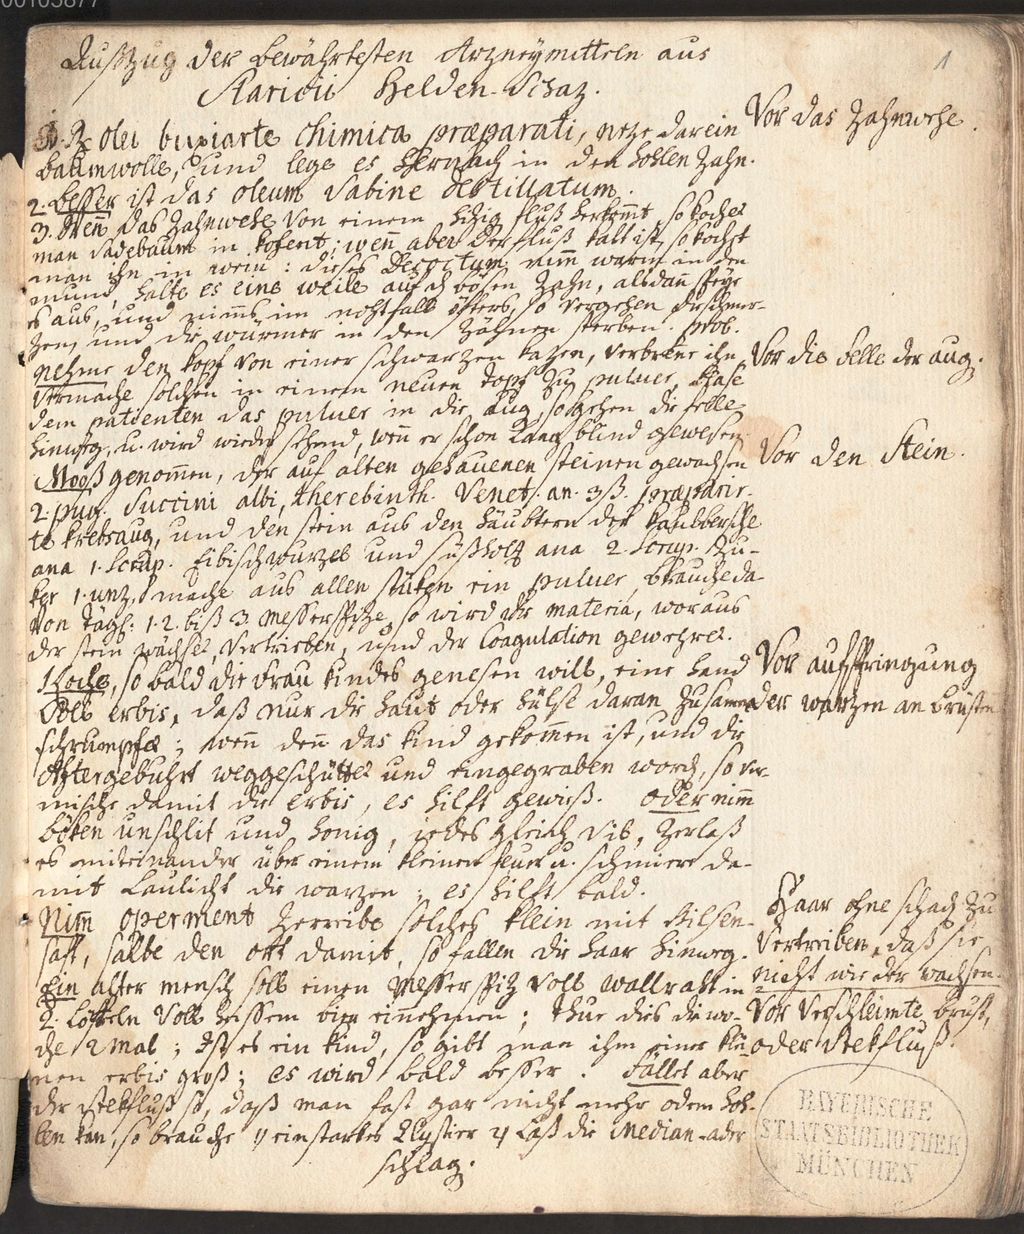 00105877
1
Außzug der bewährtesten Arzneymitteln aus
Staricii Helden-Schaz.
Vor das Zahnwehe.
1. ℞ olei buxi arte chimica præparati, neze darein
baumwolle, und lege es hernach in den hohlen Zahn.
2. besser ist das oleum Sabine destillatum.
3. Wen̄ das Zahnwehe von einem hizig fluß herkom̄t, so kochet
man Sadebaum in Kofent; wen̄ aber der fluß kalt ist, so kochet
man ihn in wein: dieses Decoctum nim̄ warm in den
mund, halte es eine weile auf dē bösen Zahn, alsdan̄ speye
es aus, und nim̄s im nohtfall öfters, so vergehen die schmer-
zen, und die würmer in den Zähnen sterben. prob.
Vor die felle der aug.
Nehme den kopf von einer schwarzen kazen, verbren̄e ihn,
vermache solchen in einem neuen topf zu pulver, blase
dem patienten das pulver in die aug, so gehen die felle
hinweg, u. wird wieder sehend, wen̄ er schon lang blind gewesen
Vor den Stein.
Mooß genom̄en, der auf alten gehauenen steinen gewachsen
2. pug. Succini albi, therebinth. Venet. an. ʒß. præparir-
te krebsaug, und den stein aus den häubtern der
ana 1. Scrup. Eibischwurzel und süßholz ana 2. Scrup. Zu-
ker 1. unz. mache aus allen stüken ein pulver, brauche da-
von tägl. 1. 2. biß 3. Messerspize, so wird die materia, woraus
der stein wächset, vertrieben, und der Coagulation gewehret.
Vor aufspringung
der warzen an brüsten
Koche, so bald die frau kindes genesen will, eine hand
voll erbis, daß nur die haut oder hülse daran zusamen
schrumpfet; wen̄ den̄ das kind gekom̄en ist, und die
Aftergebuhrt weggeschüttet und eingegraben word, so ver-
mische damit die erbis, es hilft gewiß. oder nim̄
böken unschlit und honig, iedes gleich vil, zerlaß
es miteinander über einem kleinen feuer u. schmiere da-
mit laulicht die warzen; es hilft bald.
Haar ohne schad zu
vertreiben, daß sie
nicht wieder wachsen.
Nim̄ operment zerreibe solches klein mit bilsen-
saft, salbe den ort damit, so fallen die haar hinweg.
Vor verschleimte brust,
oder Stekfluß.
Ein alter mensch soll einen Messerspiz voll wallraht in
2. Löffeln voll heissem bier einnehmen; thue dis die wo-
che 2 mal; Ist es ein kind, so gibt man ihm einer klei-
nen erbis groß; es wird bald besser. Fället aber
der stekfluß so, daß man fast gar nicht mehr odem hoh-
len kan, so brauche 1) ein starkes Clystier 2) laß die Median-ader
schlag.
BAYERISCHE
STAATSBIBLIOTHEK
MÜNCHEN